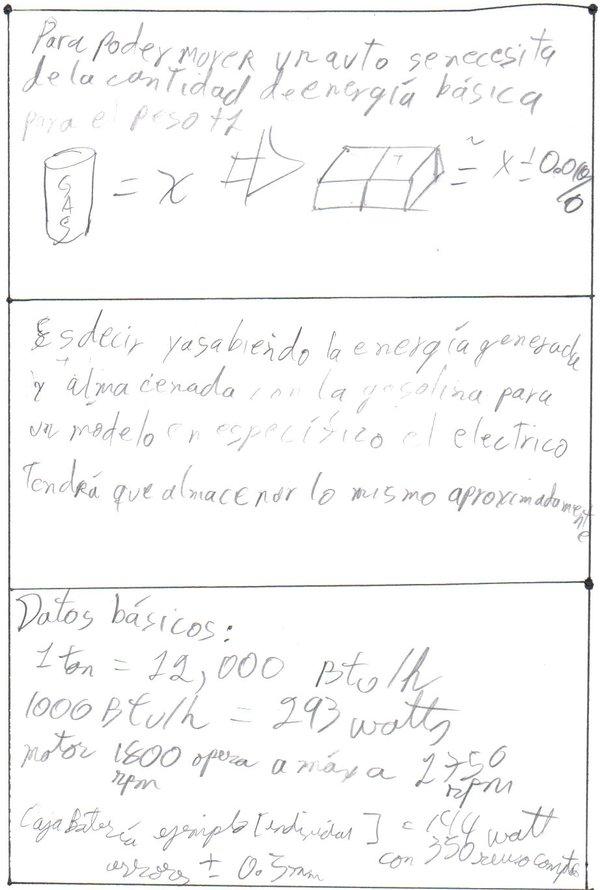 Para poder mover un auto se necesita
de la cantidad de energía básica
para el peso +1
GAS = X ⇒ T ≃ X ± 0.010%
Es decir ya sabiendo la energía generada
y almacenada con la gasolina para
un modelo en específico el electrico
Tendrá que almacenar lo mismo aproximadamente
Datos básicos:
1 ton = 12,000 Btu/h
1000 Btu/h = 293 watts
motor 1800 rpm opera a máx a 1750 rpm
Caja Batería ejemplo [individual] = 144 watt
con 350
errores ± 0.5mm